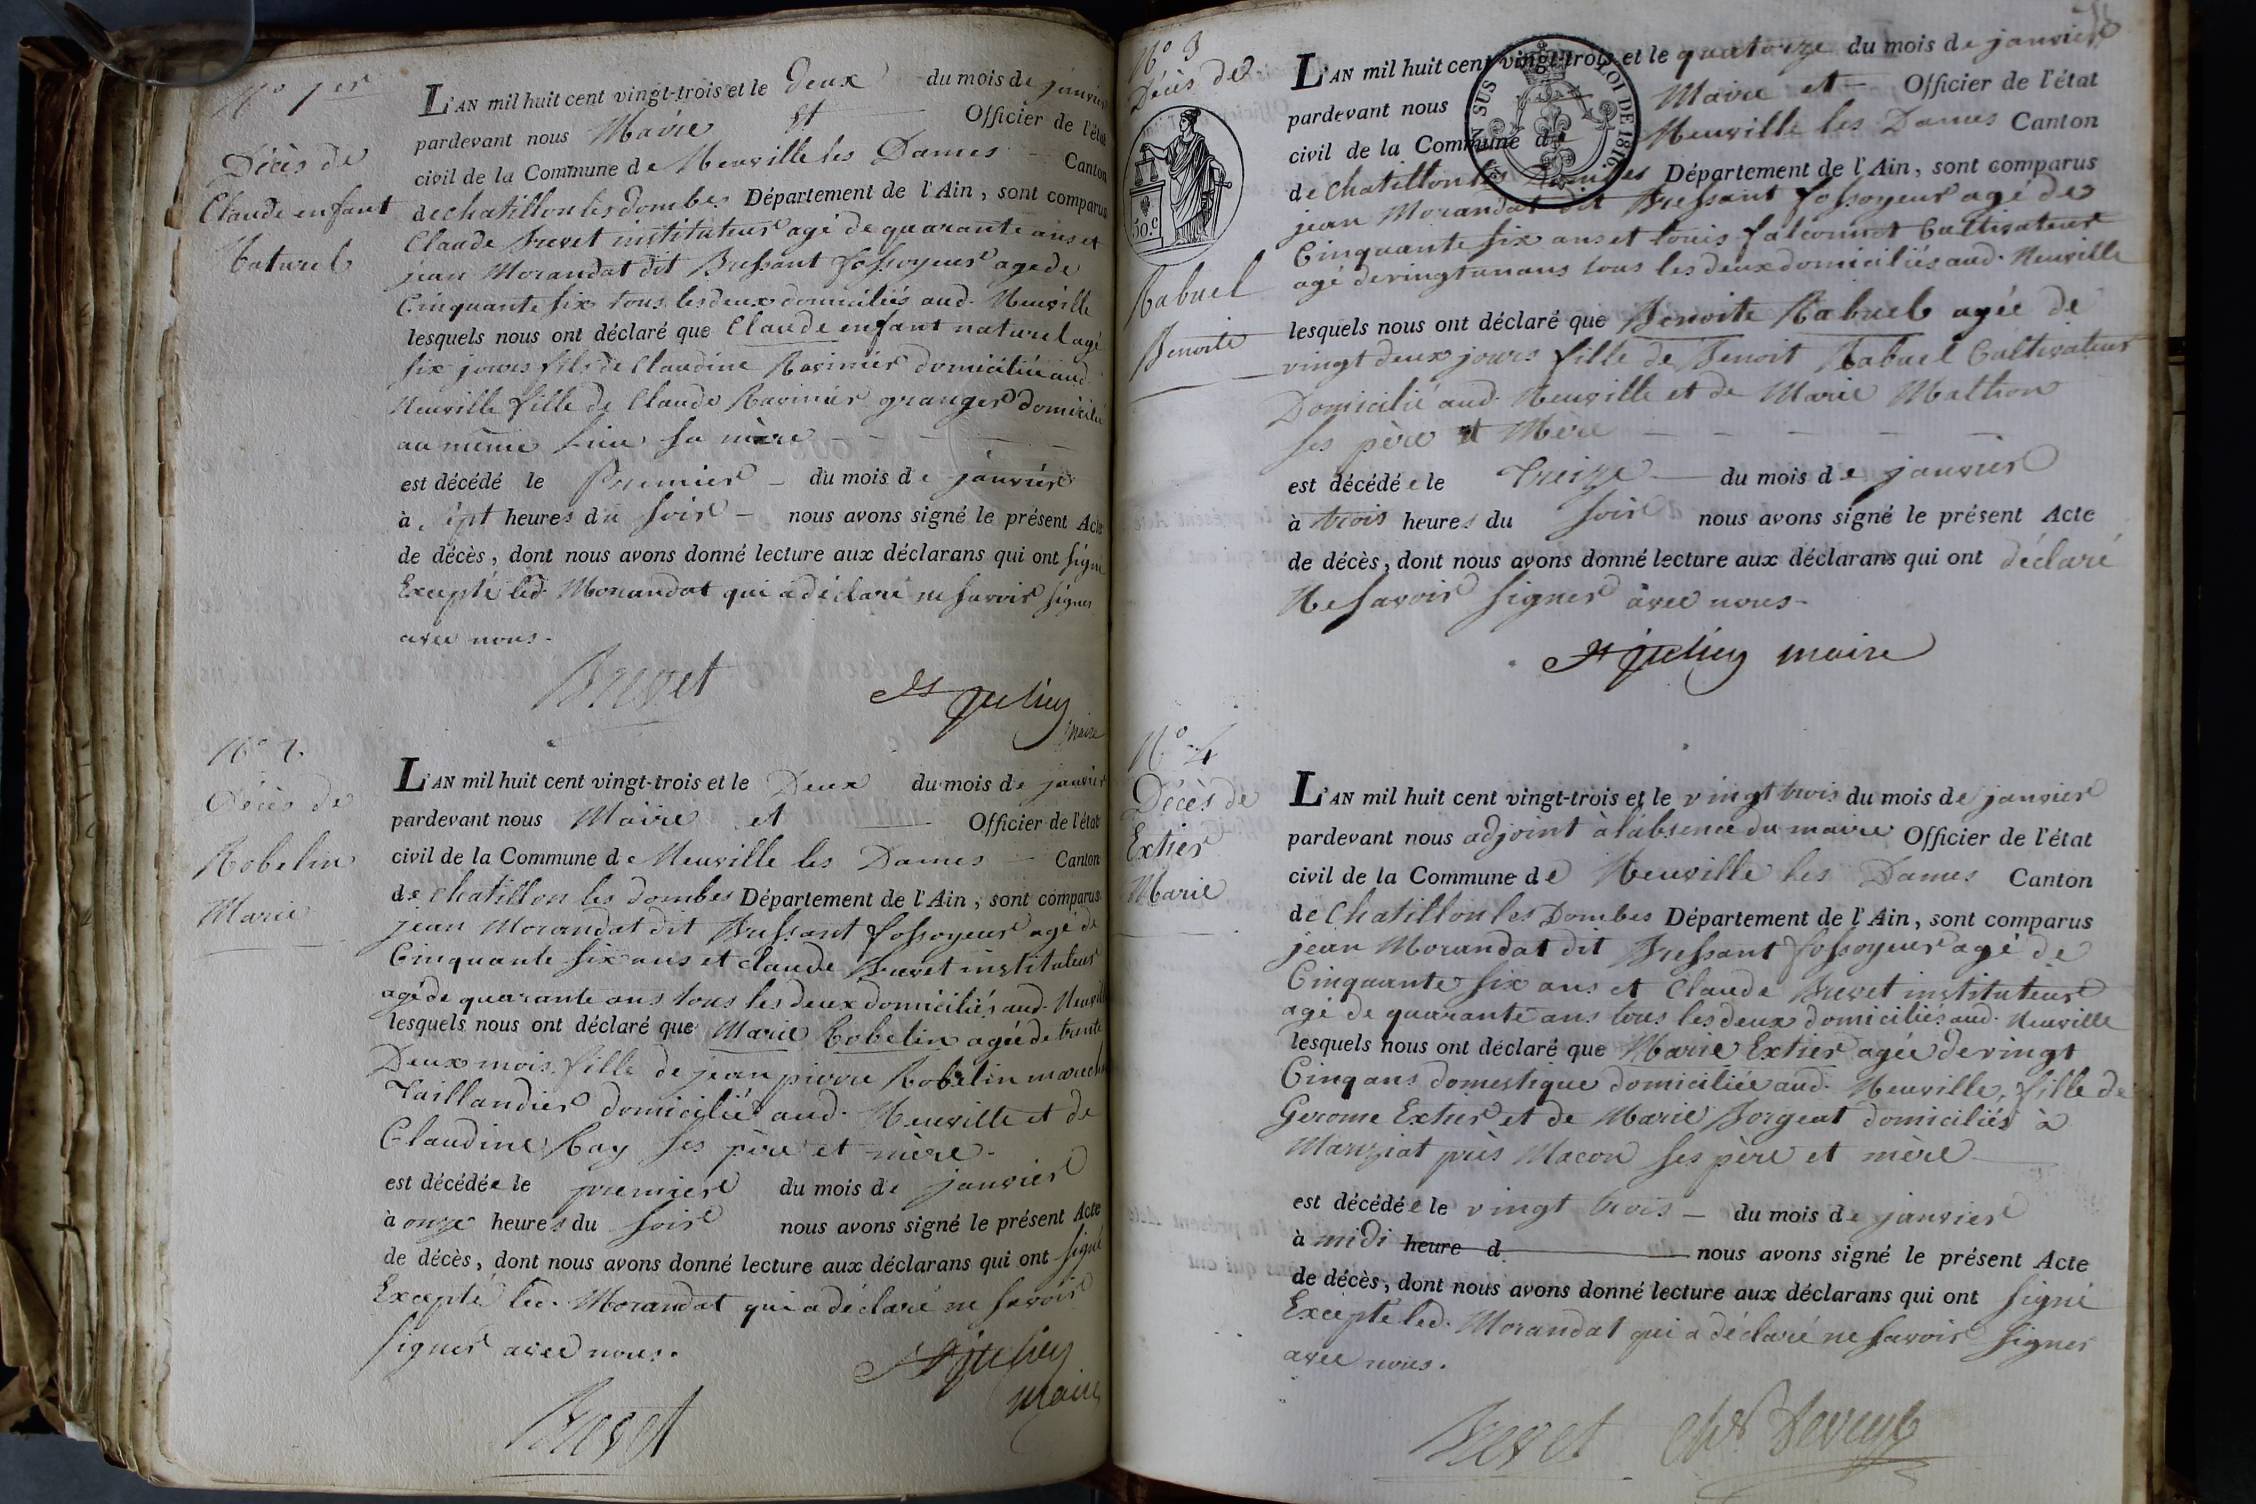 N° 1er
Décès de
Claude enfant
Naturel
L'AN mil huit cent vingt-trois et le deux du mois de janvier
pardevant nous Maire et Officier de l'état
civil de la Commune de Neuville les Dames Canton
de chatillon les dombes Département de l'Ain, sont comparus
Claude Brevet instituteur agé de quarante ans et
jean Morandat dit Bressant fossoyeur agé de
Cinquante six tous les deux domiciliés aud. Neuville
lesquels nous ont déclaré que Claude enfant naturel agé
six jours fils de Claudine Ravinier domiciliée aud.
Neuville fille de Claude Ravinier granger domicilié
au même lieu sa mère
est décédé le Premier du mois de janvier
à sept heures du soir nous avons signé le présent Acte
de décès, dont nous avons donné lecture aux déclarans qui ont signé
Excepté led. Morandat qui a déclaré ne savoir signer
avec nous.
Brevet St julien
maire
N° 2.
Décès de
Robelin
Marie
L'AN mil huit cent vingt-trois et le Deux du mois de janvier
pardevant nous Maire et Officier de l'état
civil de la Commune de Neuville les Dames Canton
de chatillon les dombes Département de l'Ain, sont comparus
jean Morandat dit Bressant fossoyeur agé de
Cinquante six ans et claude Brevet instituteur
agé de quarante ans tous les deux domiciliés aud. Neuville
lesquels nous ont déclaré que Marie Robelin agée de trente
Deux mois fille de jean pierre Robelin marechal
Taillandier domicilié aud. Neuville et de
Claudine Ray ses père et mère.
est décédée le premier du mois de janvier
à onze heures du soir nous avons signé le présent Acte
de décès, dont nous avons donné lecture aux déclarans qui ont signé
Excepté led. Morandat qui a déclaré ne savoir
signer avec nous.
St julien
maire
Brevet
N° 3
Décès de
50.c
Rabuel
Benoite
EN SUS LOI DE 1816.
L'AN mil huit cent vingt-trois et le quatorze du mois de janvier
pardevant nous Maire et Officier de l'état
civil de la Commune de Neuville les Dames Canton
de chatillon les Dombes Département de l'Ain, sont comparus
jean Morandat dit Bressant fossoyeur agé de
Cinquante six ans et louis falconnet Cultivateur
agé de vingt un ans tous les deux domiciliés aud. Neuville
lesquels nous ont déclaré que Benoite Rabuel agée de
vingt deux jours fille de Benoit Rabuel Cultivateur
Domicilié aud. Neuville et de Marie Mathon
ses père et Mère
est décédée le treize du mois de janvier
à trois heures du soir nous avons signé le présent Acte
de décès, dont nous avons donné lecture aux déclarans qui ont déclaré
Ne savoir signer avec nous.
St julien maire
N° 4
Décès de
Extier
Marie
L'AN mil huit cent vingt-trois et le vingt trois du mois de janvier
pardevant nous adjoint à l'absence du maire Officier de l'état
civil de la Commune de Neuville les Dames Canton
de Chatillon les Dombes Département de l'Ain, sont comparus
jean Morandat dit Bressant fossoyeur agé de
Cinquante six ans et Claude Brevet instituteur
agé de quarante ans tous les deux domiciliés aud. Neuville
lesquels nous ont déclaré que Marie Extier agée de vingt
Cinq ans domestique domiciliée aud. Neuville, fille de
Gerome Extier et de Marie Borgeat domiciliés à
Manziat près Macon ses père et mère
est décédée le vingt trois du mois de janvier
à midi heure d nous avons signé le présent Acte
de décès, dont nous avons donné lecture aux déclarans qui ont signé
Excepté led. Morandat qui a déclaré ne savoir signer
avec nous.
Brevet